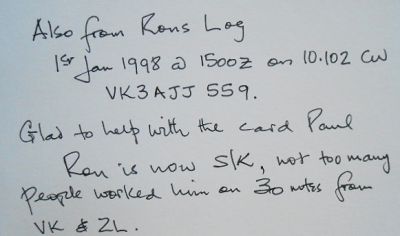 Also from Rons Log
1st Jan 1998 @ 1500Z on 10.102 CW
VK3AJJ 559.
Glad to help with the card Paul
Ron is now S/K, not too many
People worked him on 30 mtrs from
VK & ZL.